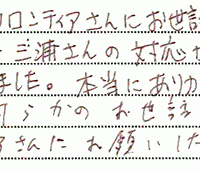 フロンティアさんにお世話
三浦さんの対応が
ました。本当にありが
何らかのお世話
さんにお願いした